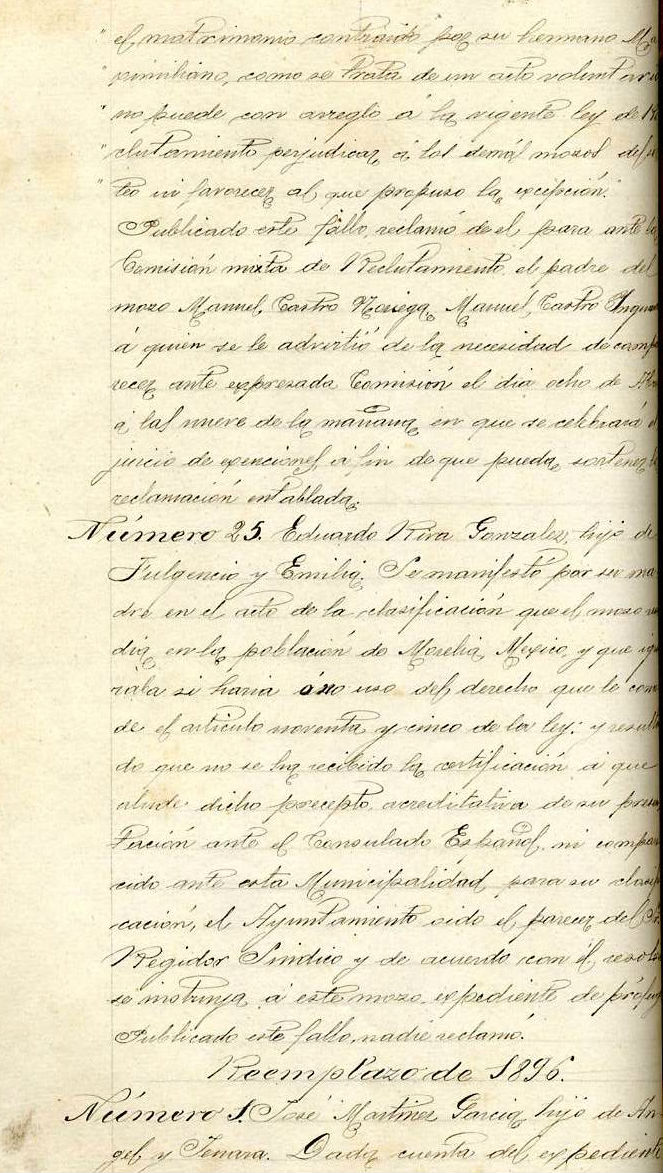 " el matrimonio contraido por su hermano Ma
" ximiliano, como se trata de un acto voluntario
" no puede con arreglo á la vigente ley de Re
" clutamiento perjudicar á los demás mozos del
" teo ni favorecer al que propuso la excepción."
Publicado este fallo, reclamó de el para ante la
Comisión mixta de Reclutamiento, el padre del
mozo Manuel Castro Noriega, Manuel Castro
á quien se le advirtió de la necesidad de compa
recer ante expresada Comisión el dia ocho de Ab
á las nueve de la mañana en que se celebrará el
juicio de exenciones á fin de que pueda sostener la
reclamación entablada.
Número 25. Eduardo Riva Gonzalez, hijo de
Fulgencio y Emilia. Se manifestó por su ma
dre en el acto de la clasificación que el mozo re
dia en la población de Morelia, Mexico, y que ig
raba si haria ó no uso del derecho que le con
de el articulo noventa y cinco de la ley; y resul
do que no se ha recibido la certificación á que
alude dicho precepto acreditativa de su presen
tación ante el Consulado Español, ni compar
cido ante esta Municipalidad para su clasifi
cación, el Ayuntamiento oido el parecer del Sr.
Regidor Sindico y de acuerdo con él, resol
se instruya á este mozo expediente de prófug
Publicado este fallo, nadie reclamó.
Reemplazo de 1896.
Número 1. José Martinez Garcia, hijo de An
gel y Jenara. Dada cuenta del expediente